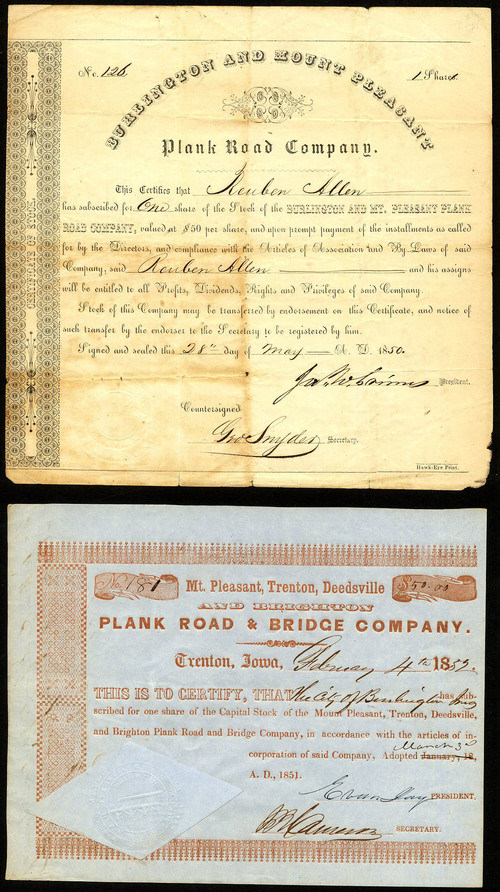 BURLINGTON AND MOUNT PLEASANT
No. 126
1 Share
Plank Road Company.
This Certifies that Reuben Allen
has subscribed for One share of the Stock of the BURLINGTON AND MT. PLEASANT PLANK
ROAD COMPANY, valued at $50 per share, and upon prompt payment of the installments as called
for by the Directors, and compliance with the Articles of Association and By-Laws of said
Company, said Reuben Allen and his assigns
will be entitled to all Profits, Dividends, Rights and Privileges of said Company.
Stock of this Company may be transferred by endorsement on this Certificate, and notice of
such transfer by the endorser to the Secretary to be registered by him.
Signed and sealed this 28th day of May A. D. 1850.
Jas. W. Grimes President.
Countersigned
Geo Snyder Secretary.
Hawk-Eye Print.
CERTIFICATE OF STOCK.
No 181
Mt. Pleasant, Trenton, Deedsville
$50.00
AND BRIGHTON
PLANK ROAD & BRIDGE COMPANY.
Trenton, Iowa, February 4th 1852.
THIS IS TO CERTIFY, THAT The City of Burlington has sub-
scribed for one share of the Capital Stock of the Mount Pleasant, Trenton, Deedsville,
and Brighton Plank Road and Bridge Company, in accordance with the articles of in-
March 3d
corporation of said Company, Adopted January, 18,
A. D., 1851.
Evan Jay PRESIDENT.
Cameron SECRETARY.